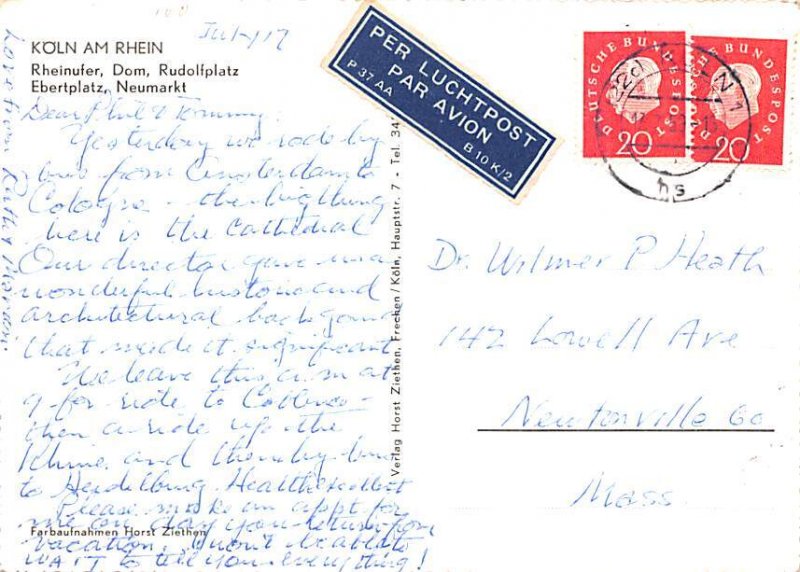 KÖLN AM RHEIN
Rheinufer, Dom, Rudolfplatz
Ebertplatz, Neumarkt
July 17
Dear Phil & Tommy:
Yesterday we rode by
bus from Amsterdam to
Cologne - the big thing
here is the Cathedral
Our director gave us a
wonderful historic and
architectural background
that made it significant
We leave this a.m at
9 - for ride to
then a ride up the
Rhine and then by bus
to Heidelburg. Health excellent
Please make an appt for
me on day you return from
vacation. I won't be able to
WAIT to tell you everything!
Love from Ruth &
Farbaufnahmen Horst Ziethen
Verlag Horst Ziethen, Frechen/Köln, Hauptstr. 7 - Tel. 34
PER LUCHTPOST
PAR AVION
P 37 AA
B 10 K/2
DEUTSCHE BUNDESPOST
20
DEUTSCHE BUNDESPOST
20
(22c) KÖLN 1
hs
Dr. Wilmer P Heath
142 Lowell Ave
Newtonville 60
Mass